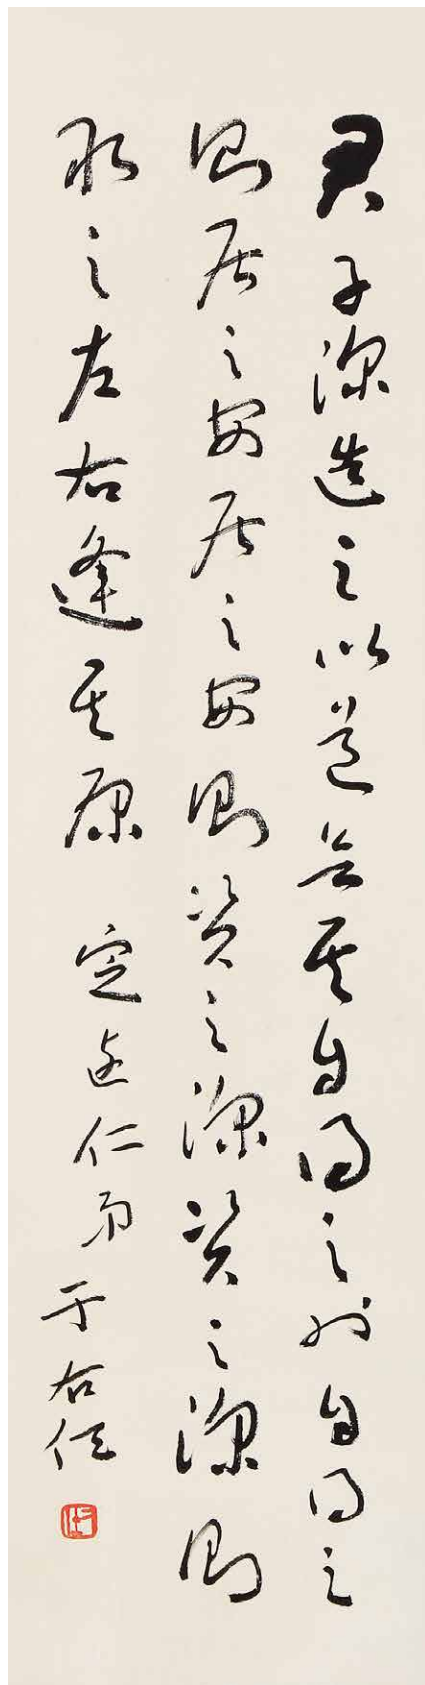 君子深造之以道欲其自得之也自得之
則居之安居之安則資之深資之深則
取之左右逢其原 定遠仁弟 于右任
右任